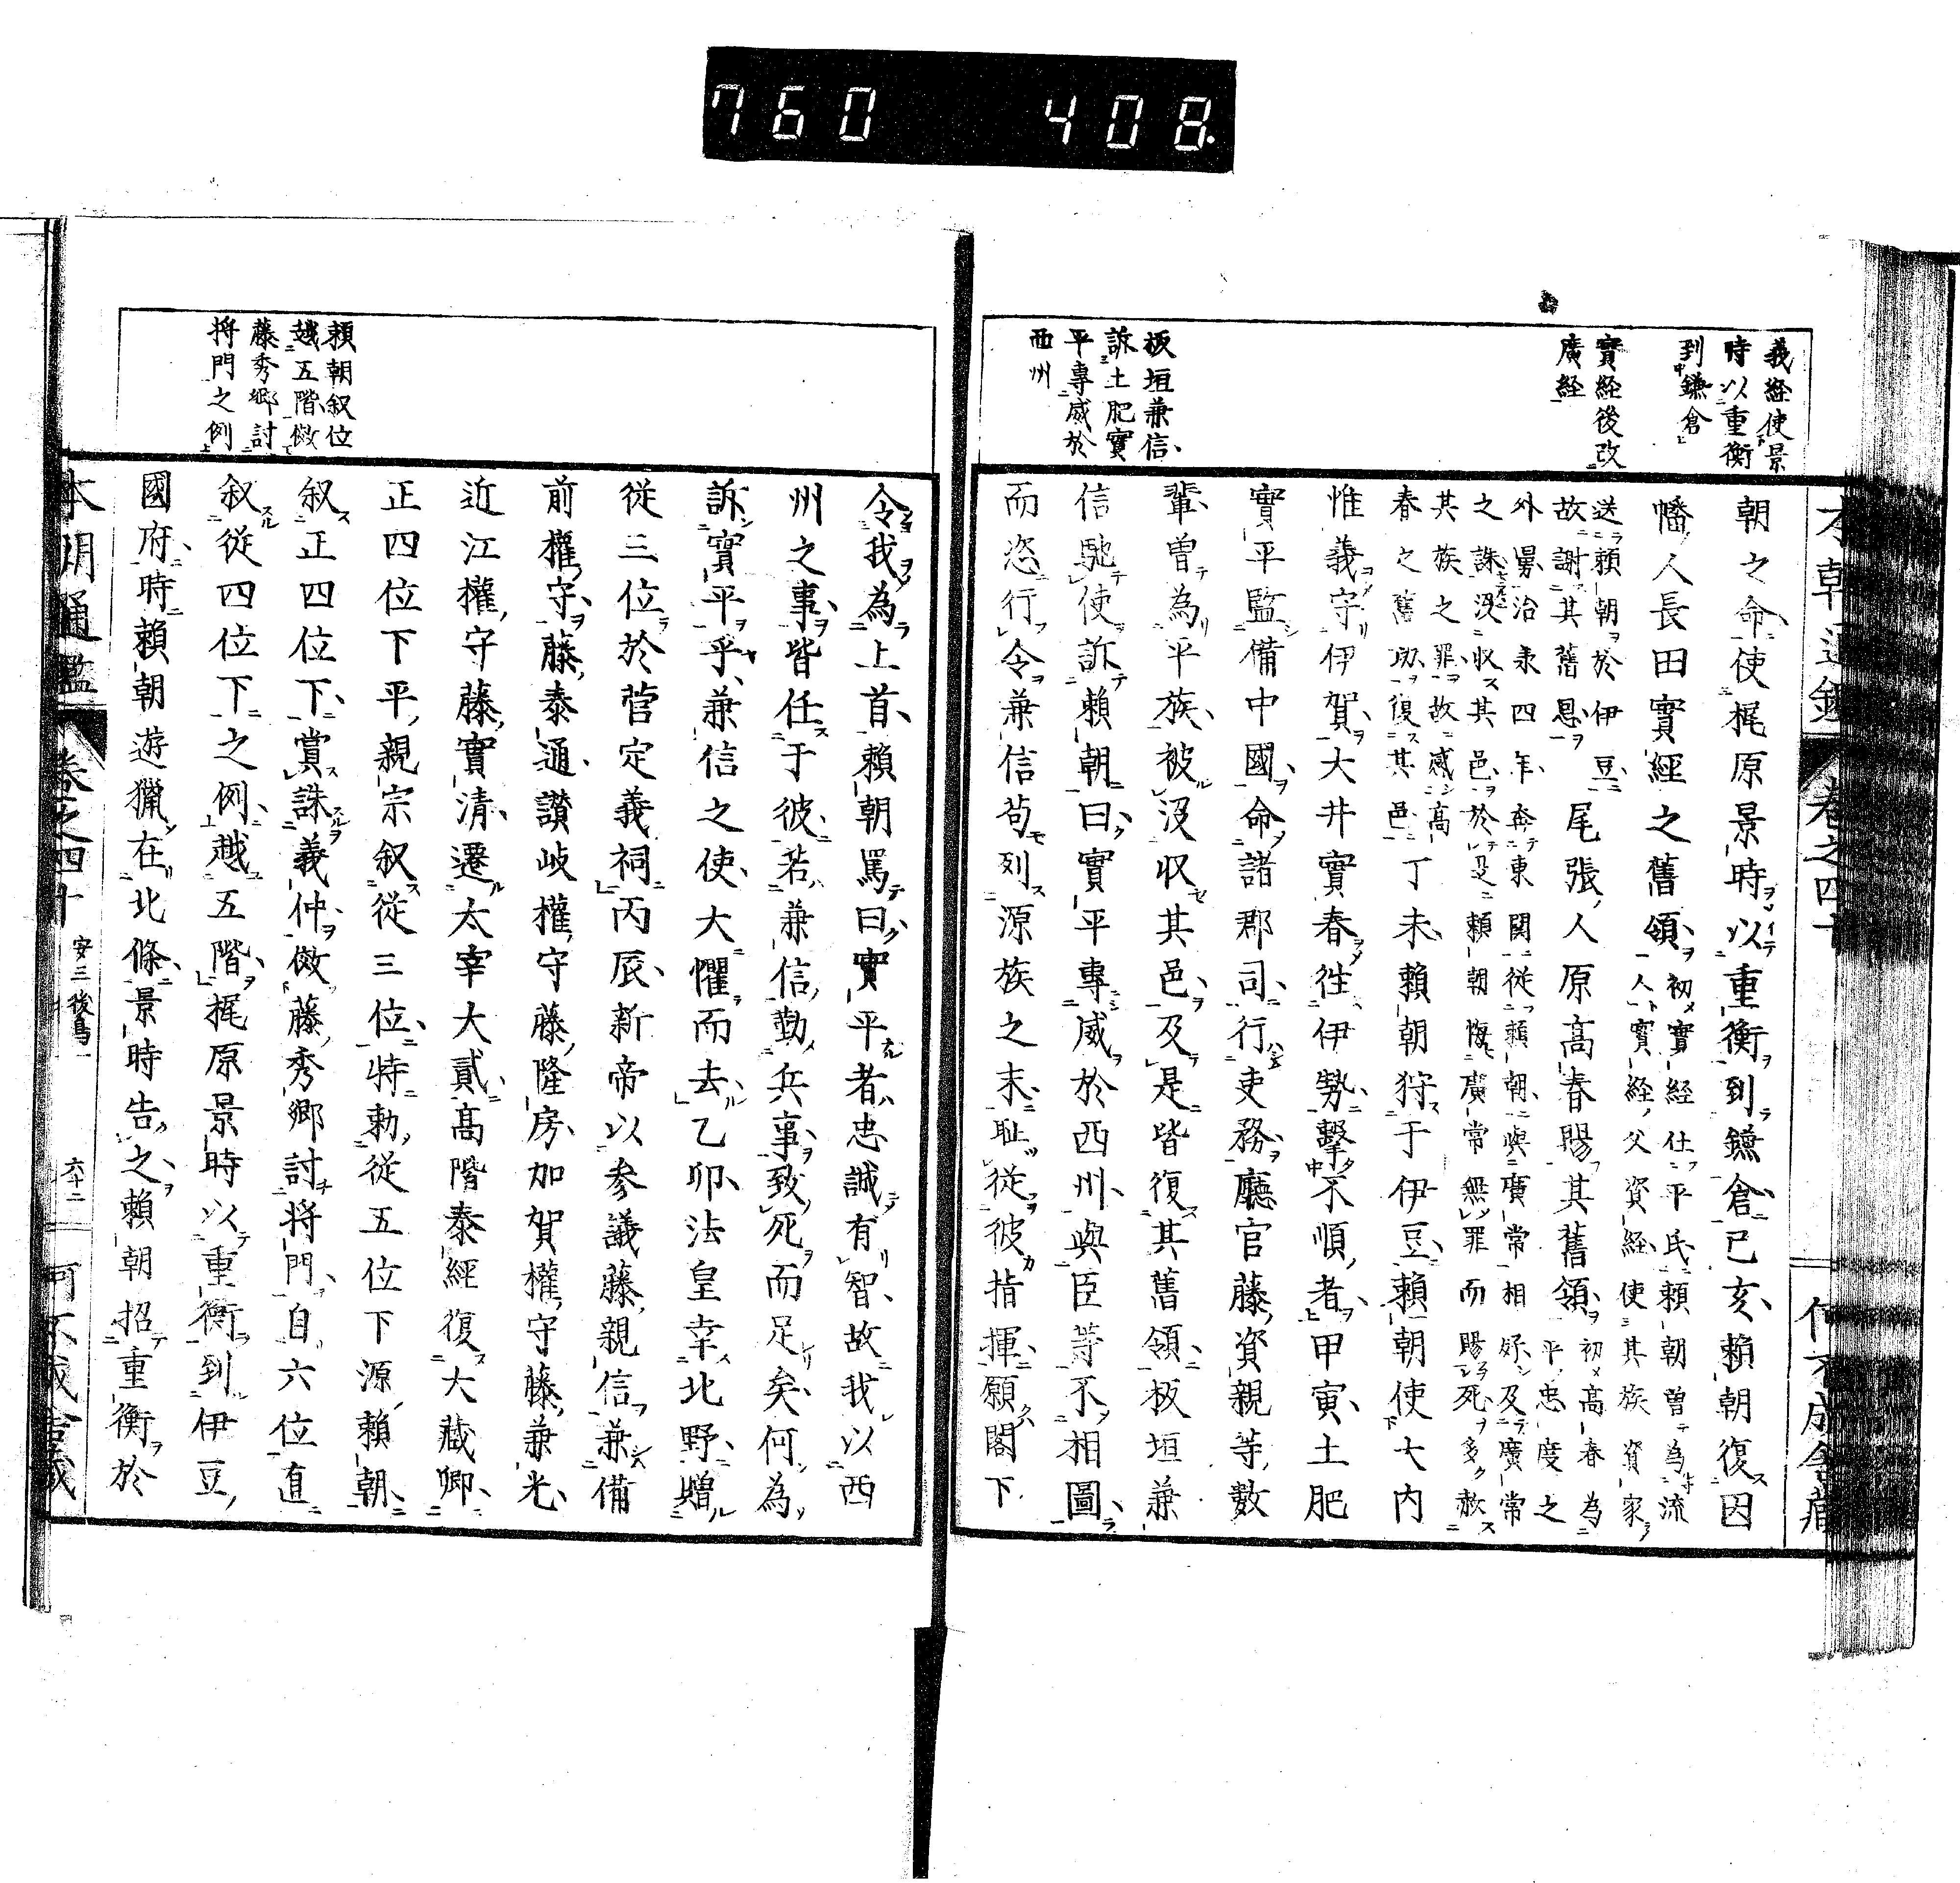 760 408.
義経使景
時以重衡
到鎌倉
實経後改
廣経
板垣兼信
訴土肥實
平專威於
西州
朝之命使梶原景時以重衡到鎌倉已亥賴朝復因
幡人長田實經之舊領初實経仕平氏賴朝曽為流
人實経父資経使其族資家
送賴朝於伊豆
故謝其舊恩尾張人原高春賜其舊領初高春為
平忠度之
外舅治承四年奔東関從賴朝與廣常相好及廣常
之誅没収其邑於是賴朝悔廣常無罪而賜死多赦
其族之罪故感高
春之舊功復其邑丁未賴朝狩于伊豆賴朝使大内
惟義守伊賀大井實春徃伊勢擊不順者甲寅土肥
實平監備中國命諸郡司行吏務廳官藤資親等數
輩曽為平族被没収其邑及是皆復其舊領板垣兼
信馳使訴賴朝曰實平專威於西州與臣等不相圖
而恣行令兼信苟列源族之末耻從彼指揮願閣下
本朝通鑑 卷之四十
賴朝叙位
越五階倣
藤秀郷討
将門之例
令我為上首賴朝罵曰實平者忠誠有智故我以西
州之事皆任于彼若兼信勤兵事致死而足矣何為
訴實平乎兼信之使大懼而去乙卯法皇幸北野贈
從三位於菅定義祠丙辰新帝以参議藤親信兼備
前權守藤泰通讃岐權守藤隆房加賀權守藤兼光
近江權守藤實清遷太宰大貳高階泰經復大藏卿
正四位下平親宗叙從三位特勅從五位下源賴朝
叙正四位下賞誅義仲倣藤秀郷討将門自六位直
叙從四位下之例越五階梶原景時以重衡到伊豆
國府時賴朝遊獵在北條景時告之賴朝招重衡於
本朝通鑑 卷之四十 安三後鳥一 六十二